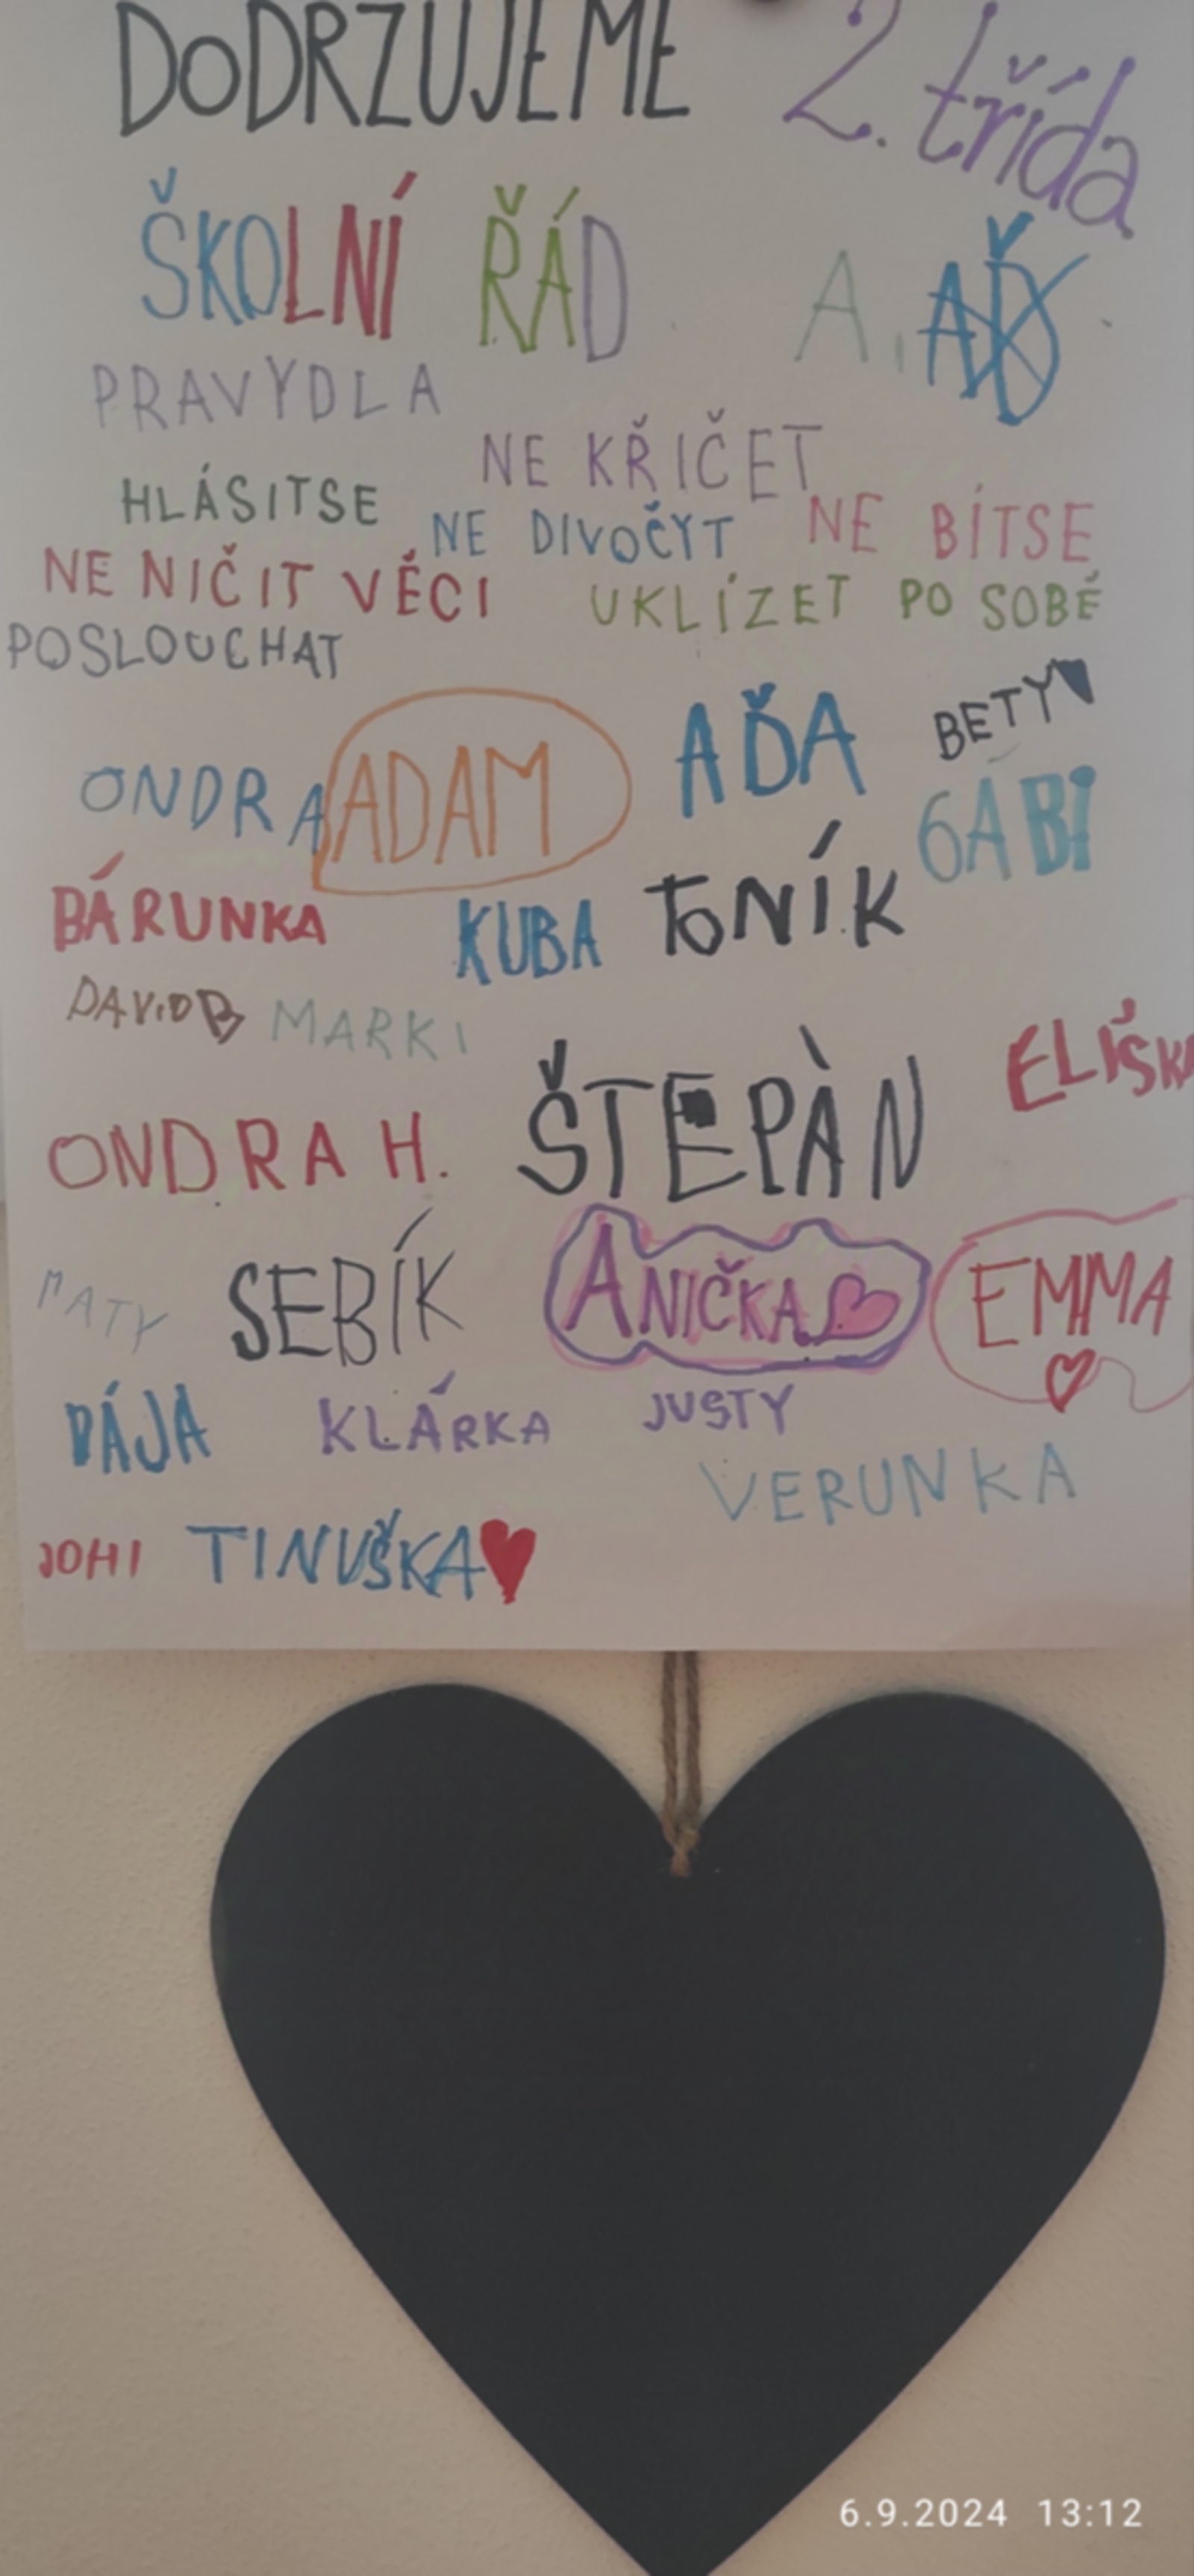 DODRZUJEME 2. třída
ŠKOLNÍ ŘÁD A. AĎ
PRAVYDLA
NE KŘIČET
HLÁSITSE NE DIVOČYT NE BÍTSE
NE NIČIT VĚCI UKLÍZET PO SOBĚ
POSLOUCHAT
ONDRA ADAM AĎA BETY
GABI
BÁRUNKA KUBA TONÍK
DAVID B MARKI
ELIŠKA
ONDRA H. ŠTEPÀN
MATY SEBÍK ANIČKA EMMA
PÁJA KLÁRKA JUSTY
VERUNKA
JOHI TINUŠKA
6.9.2024 13:12